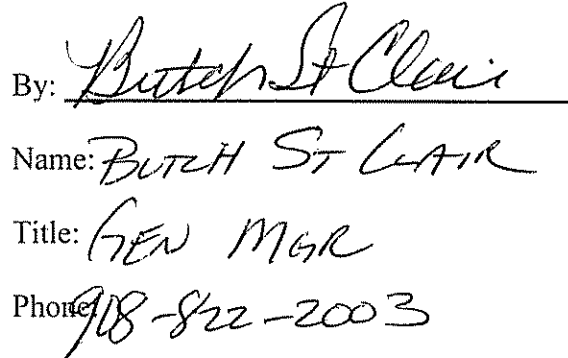 By: Butch St Clair
Name: BUTCH ST CLAIR
Title: GEN MGR
Phone: 918-822-2003